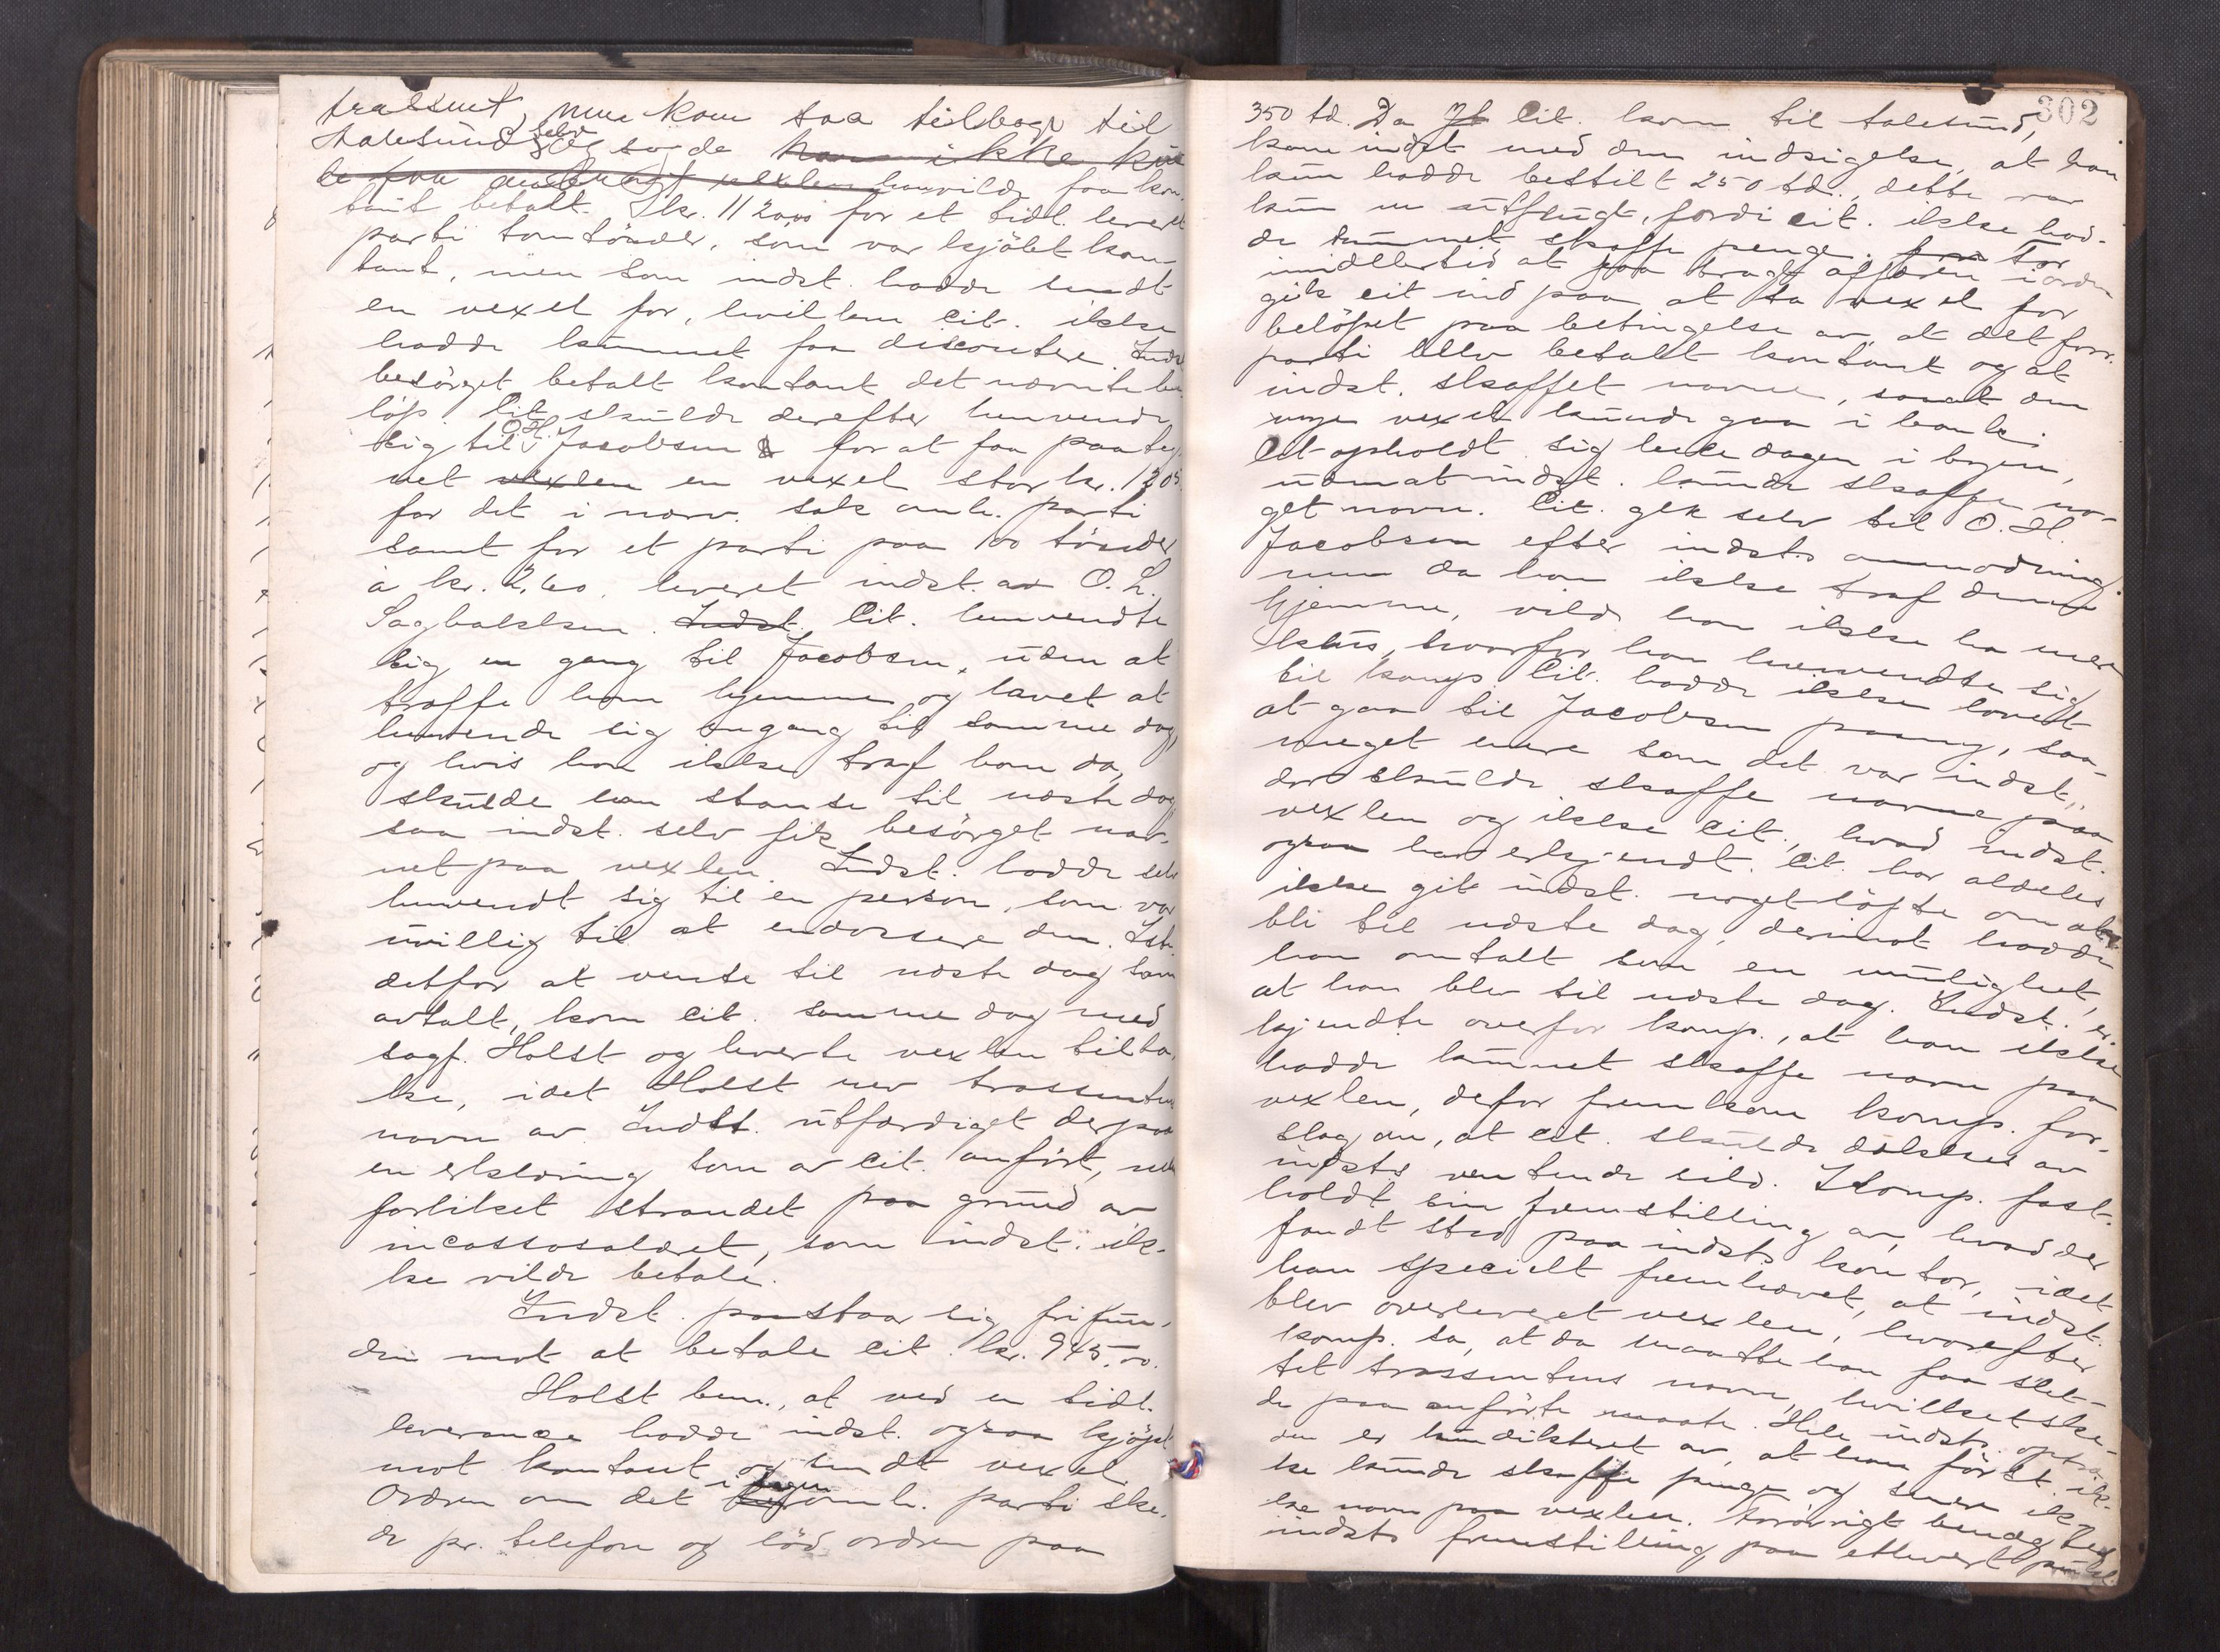 trassent, men kom saa tilbage til
Aalesund selv og sa, da han ikke kun
de faa anbragt vexlen han vilde faa kon-
tant betalt. Ikr. 112000 for et tidl. leveret
parti tomtönder, som var kjöbt kon-
tant, men som indst. hadde sendt
en vexel for, hvilken cit. ikke
hadde kunnet faa discontere. Indst.
besörget betalt kontant det nævnte be-
löp. Cit. skulde derefter henvende
sig til O.H. Jacobsen for at faa paateg-
net vexlen en vexel stor kr. 1205
for det i nærv. sak omh. parti
samt for et parti paa 100 tönder
à kr. 2,60, leveret indst. av O. L.
Sagbakken. Indst. Cit. henvendte
sig en gang til Jacobsen, uden at
træffe ham hjemme og lovet at
henvende sig engang til samme dag,
og hvis han ikke traf ham da,
skulde han stanse til næste dag
saa indst. selv fik besörget nav-
net paa vexlen. Indst. hadde selv
henvendt sig til en person, som var
uvillig til at endossere den. Ist.
detfor at vente til næste dag som
avtalt, kom cit. samme dag med
sagf. Holst og leverte vexlen tilba-
ke, idet Holst rev trassentens
navn av. Indst. utfærdiget derpaa
en erklæring som av cit. anfört, men
forliket strandet paa grund av
incassosalæret, som indst. ik-
ke vilde betale.
Indst. paastaar sig frifun-
den mot at betale cit. kr. 945.00.
Holst bem., at ved en tidl.
leverance hadde indst. ogsaa kjöpt
mot kontant og sendt vexel.
Ordren om det i sagen omh. parti ske-
de pr. telefon og löd ordren paa
302
350 td. Da cit. kom til Aalesund,
kom indst. med den indsigelse, at han
kun hadde bestilt 250 td., dette var
kun en utflugt, fordi cit. ikke had-
de kunnet skaffe penge. For
imidlertid at faa bragt affæren i orden
gik cit ind paa at ta vexel for
belöpet paa betingelse av, at det forr.
parti blev betalt kontant og at
indst. skaffet navne, saa at den
nye vexel kunde gaa i bank.
Cit opholdt sig hele dagen i byen,
uden at indst. kunde skaffe no-
get navn. Cit. gik selv til O. H.
Jacobsen efter indsts anmodning,
men da han ikke traf denne
hjemme, vilde han ikke ha mere
kluss, hvorfor han henvendte sig
til komp. Cit. hadde ikke lovet
at gaa til Jacobsen paany, saa-
meget mere som det var indst.,
der skulde skaffe navne paa
vexlen og ikke cit., hvad indst.
ogsaa har erkjendt. Cit. har aldeles
ikke git indst. noget löfte om at
bli til næste dag, derimot hadde
han omtalt som en mulighet,
at han blev til næste dag. Indst. er-
kjendte overfor komp., at han ikke
hadde kunnet skaffe navn paa
vexlen, defor fremkom komp. for-
slag om, at cit. skulde dækkes av
indsts ventende sild. Komp. fast-
holdt sin fremstilling av, hvad der
fandt sted paa indsts kontor, idet
han specielt fremhævet, at indst.
blev overleveret vexlen, hvorefter
komp. sa, at da maatte han faa slet-
tet trassentens navn, hvilket ske-
de paa anförte maate. Hele indsts. optræ-
den er kun dikteret av, at han först ik-
ke kunde skaffe penge og senere ik-
ke navn paa vexlen. Forövrigt benegtes
indsts fremstilling paa ethvert punkt.